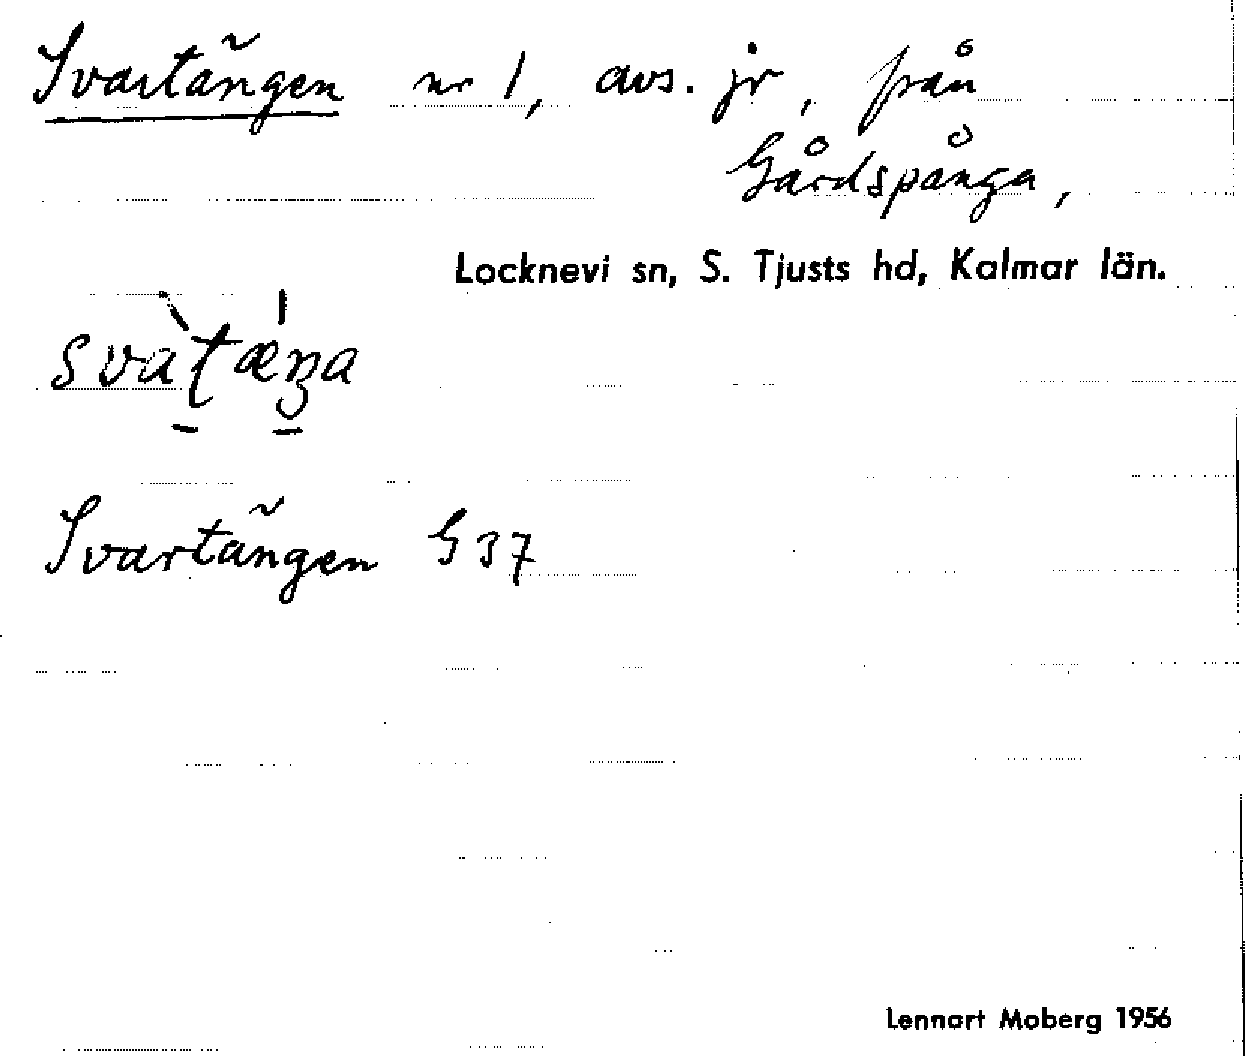 Svartängen nr 1, avs. jr, från
Gårdspånga,
Locknevi sn, S. Tjusts hd, Kalmar län.
Svartängen G 37
Lennart Moberg 1956